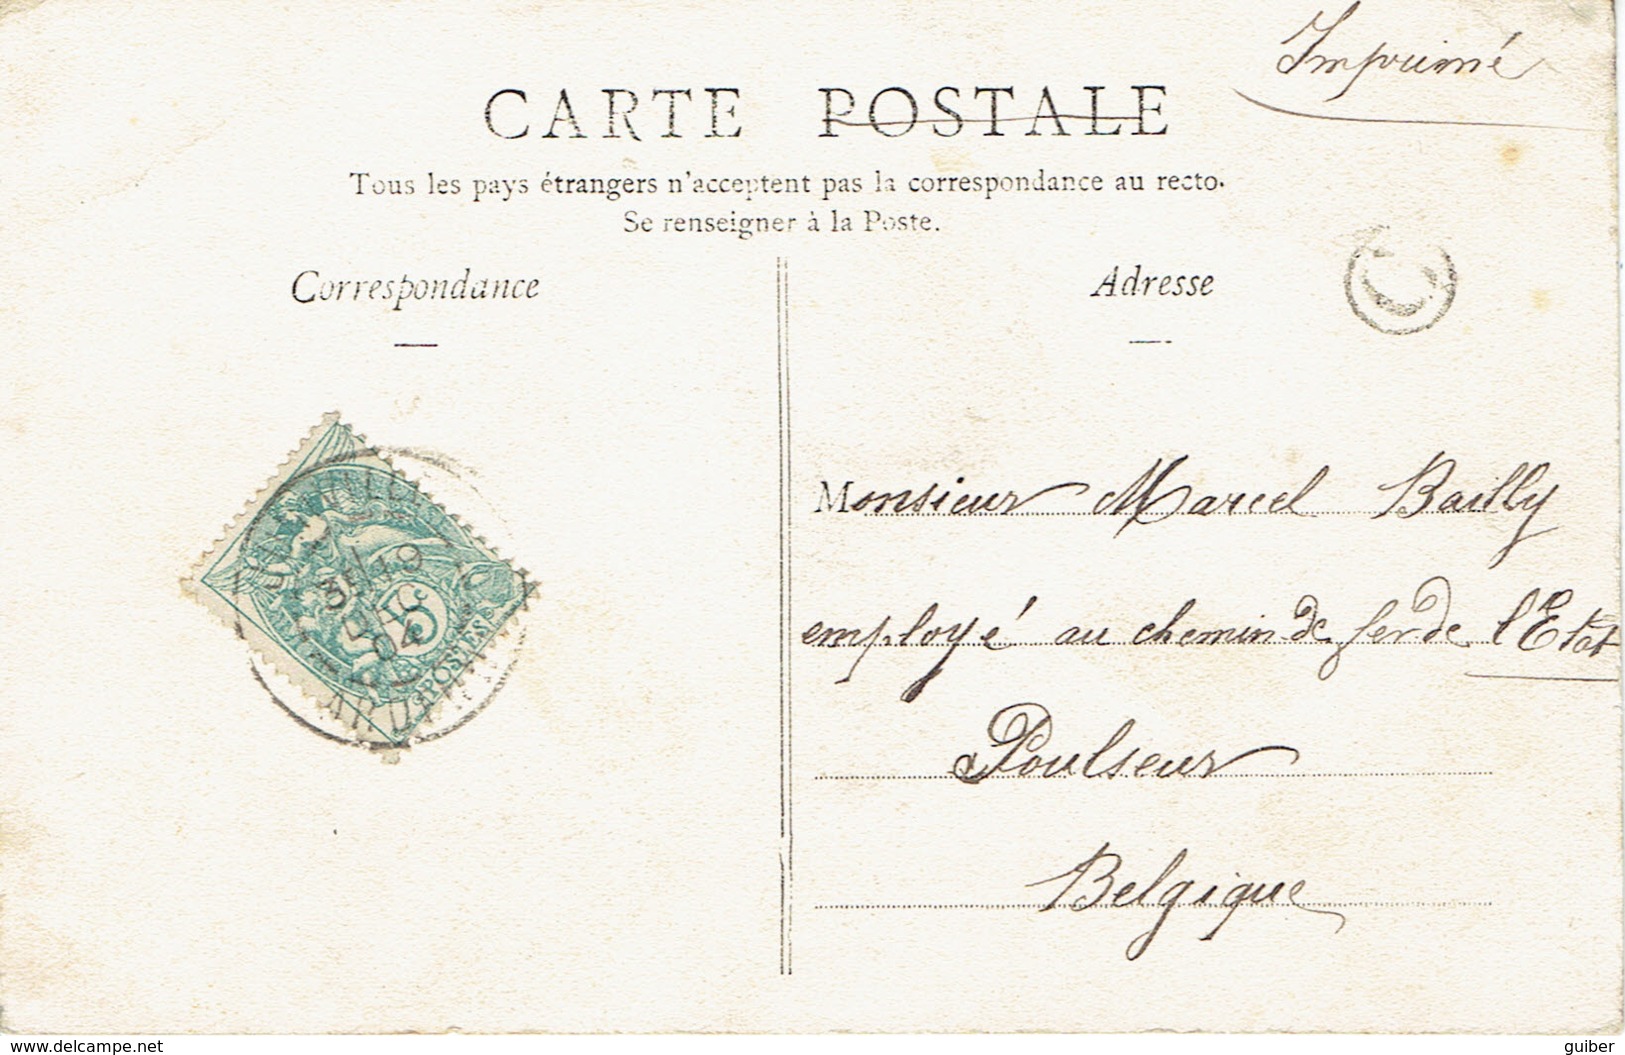 Imprimé
CARTE POSTALE
Tous les pays étrangers n'acceptent pas la correspondance au recto.
Se renseigner à la Poste.
Correspondance
Adresse
C
Monsieur Marcel Bailly
employé au chemin de fer de l'Etat
à Poulseur
Belgique
19
DEC
04
5c
POSTES
www.delcampe.net
guiber